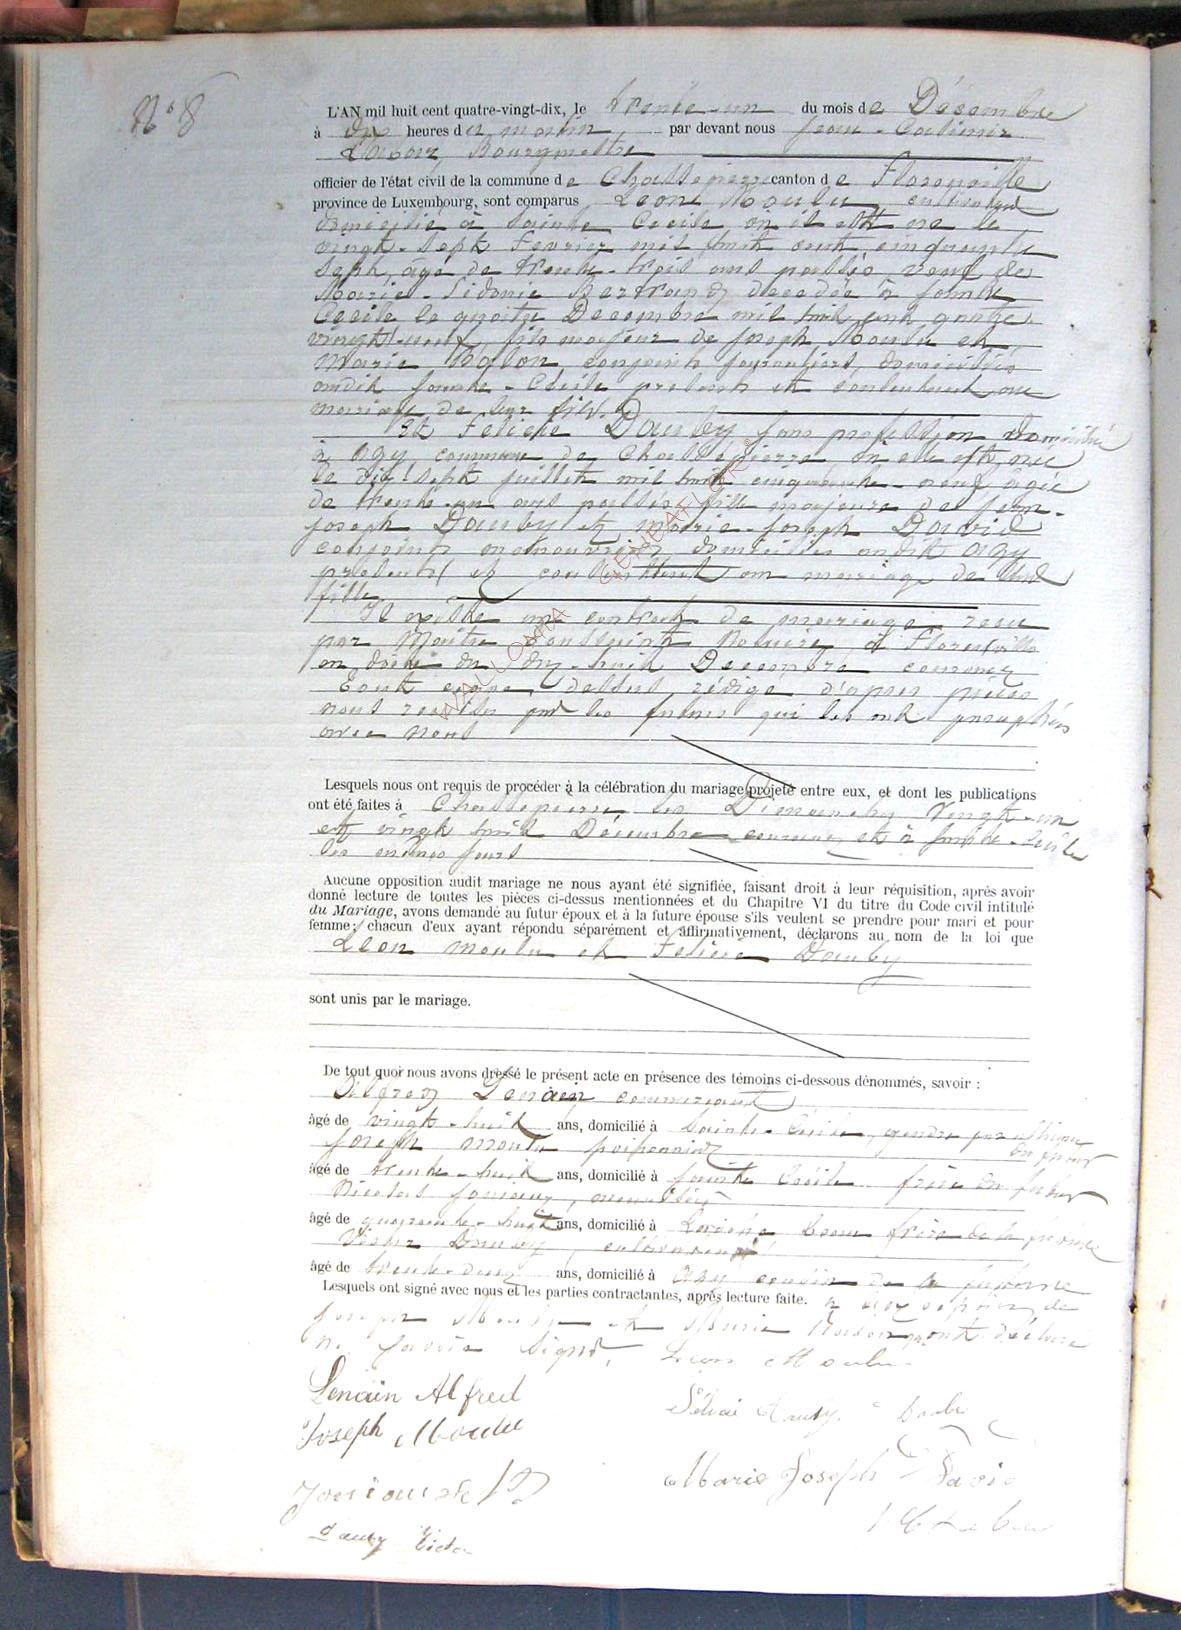 N° 8
L'AN mil huit cent quatre-vingt-dix, le trente-un du mois de Décembre
à dix heures du matin par devant nous Jean-Casimir
Bourgmestre
officier de l'état civil de la commune de Chassepierre canton de Florenville
province de Luxembourg, sont comparus Léon Moulu, cultivateur
domicilié à Sainte Cécile où il est né le
vingt-sept Fevrier mil huit cent cinquante
sept, âgé de trente-trois ans passés, veuf de
Marie-Sidonie Bertrand décédée à Sainte
Cécile le quatre Decembre mil huit cent quatre-
vingt-neuf, fils majeur de Joseph Moulu et
Marie conjoints journaliers, domiciliés
audit Sainte-Cécile présents et consentant au
mariage de leur fils.
Et Felicie Dauby sans profession domiciliée
à Azy commune de Chassepierre où elle est née
le dix-sept juillet mil huit cinquante-neuf âgée
de trente-un ans passés fille majeure de Jean-
Joseph Dauby et Marie-Joseph David
conjoints manouvriers, domiciliés audit Azy
présents et consentant au mariage de leur
fille
Il existe un contrat de mariage reçu
par Maître Notaire à Florenville
en date du dix-huit Decembre courant
Tout ce que dessus rédigé d'après pièces
nous remises par les futurs qui les ont paraphées
avec nous
Lesquels nous ont requis de procéder à la célébration du mariage projeté entre eux, et dont les publications
ont été faites à Chassepierre les Dimanches Vingt-un
et vingt huit Décembre courant et à Sainte-Cécile
les mêmes jours
Aucune opposition audit mariage ne nous ayant été signifiée, faisant droit à leur réquisition, après avoir
donné lecture de toutes les pièces ci-dessus mentionnées et du Chapitre VI du titre du Code civil intitulé
du Mariage, avons demandé au futur époux et à la future épouse s'ils veulent se prendre pour mari et pour
femme; chacun d'eux ayant répondu séparément et affirmativement, déclarons au nom de la loi que
Léon Moulu et Felicie Dauby
sont unis par le mariage.
De tout quoi nous avons dressé le présent acte en présence des témoins ci-dessous dénommés, savoir :
Alfred Lenain commerçant
âgé de vingt-huit ans, domicilié à Sainte-Cécile,
Joseph Moulu
âgé de trente-huit ans, domicilié à Sainte Cécile frère du futur
Nicolas
âgé de quarante-huit ans, domicilié à beau frère de la future
Victor Dauby, cultivateur
âgé de trente-deux ans, domicilié à Azy cousin de la future
Lesquels ont signé avec nous et les parties contractantes, après lecture faite. à l'exception de
Joseph Moulu et Marie qui ont déclaré
ne savoir signer. Léon Moulu
Lenain Alfred
Félicie Dauby
Joseph Moulu
Marie Joseph David
Dauby Victor
WALLONIA GENEAFLUX